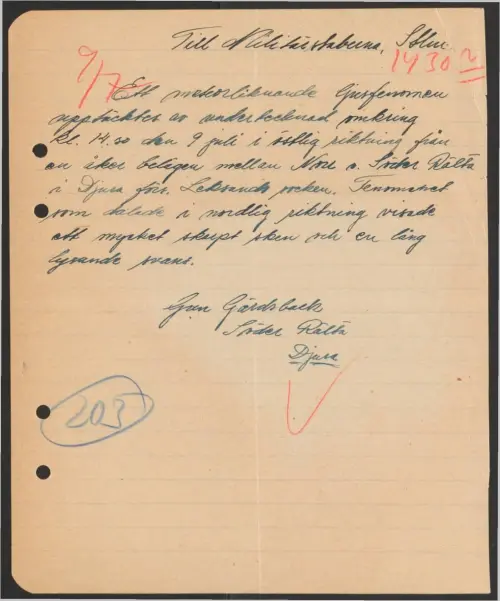 Till Militärstaberna, Sthlm.
9/7 1430
Ett meteorliknande ljusfenomen
upptäcktes av undertecknad omkring
kl. 14.30 den 9 juli i östlig riktning från
en åker belägen mellan Nore o. Söder Rälta
i Djura förs. Leksands socken. Fenomenet
som dalade i nordlig riktning visade
ett mycket skarpt sken och en lång
lysande svans.
Gun Gärdsback
Söder Rälta
Djura
203